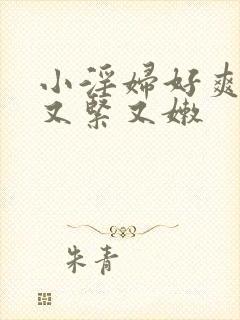 小淫婦好爽
又緊又嫩
朱青